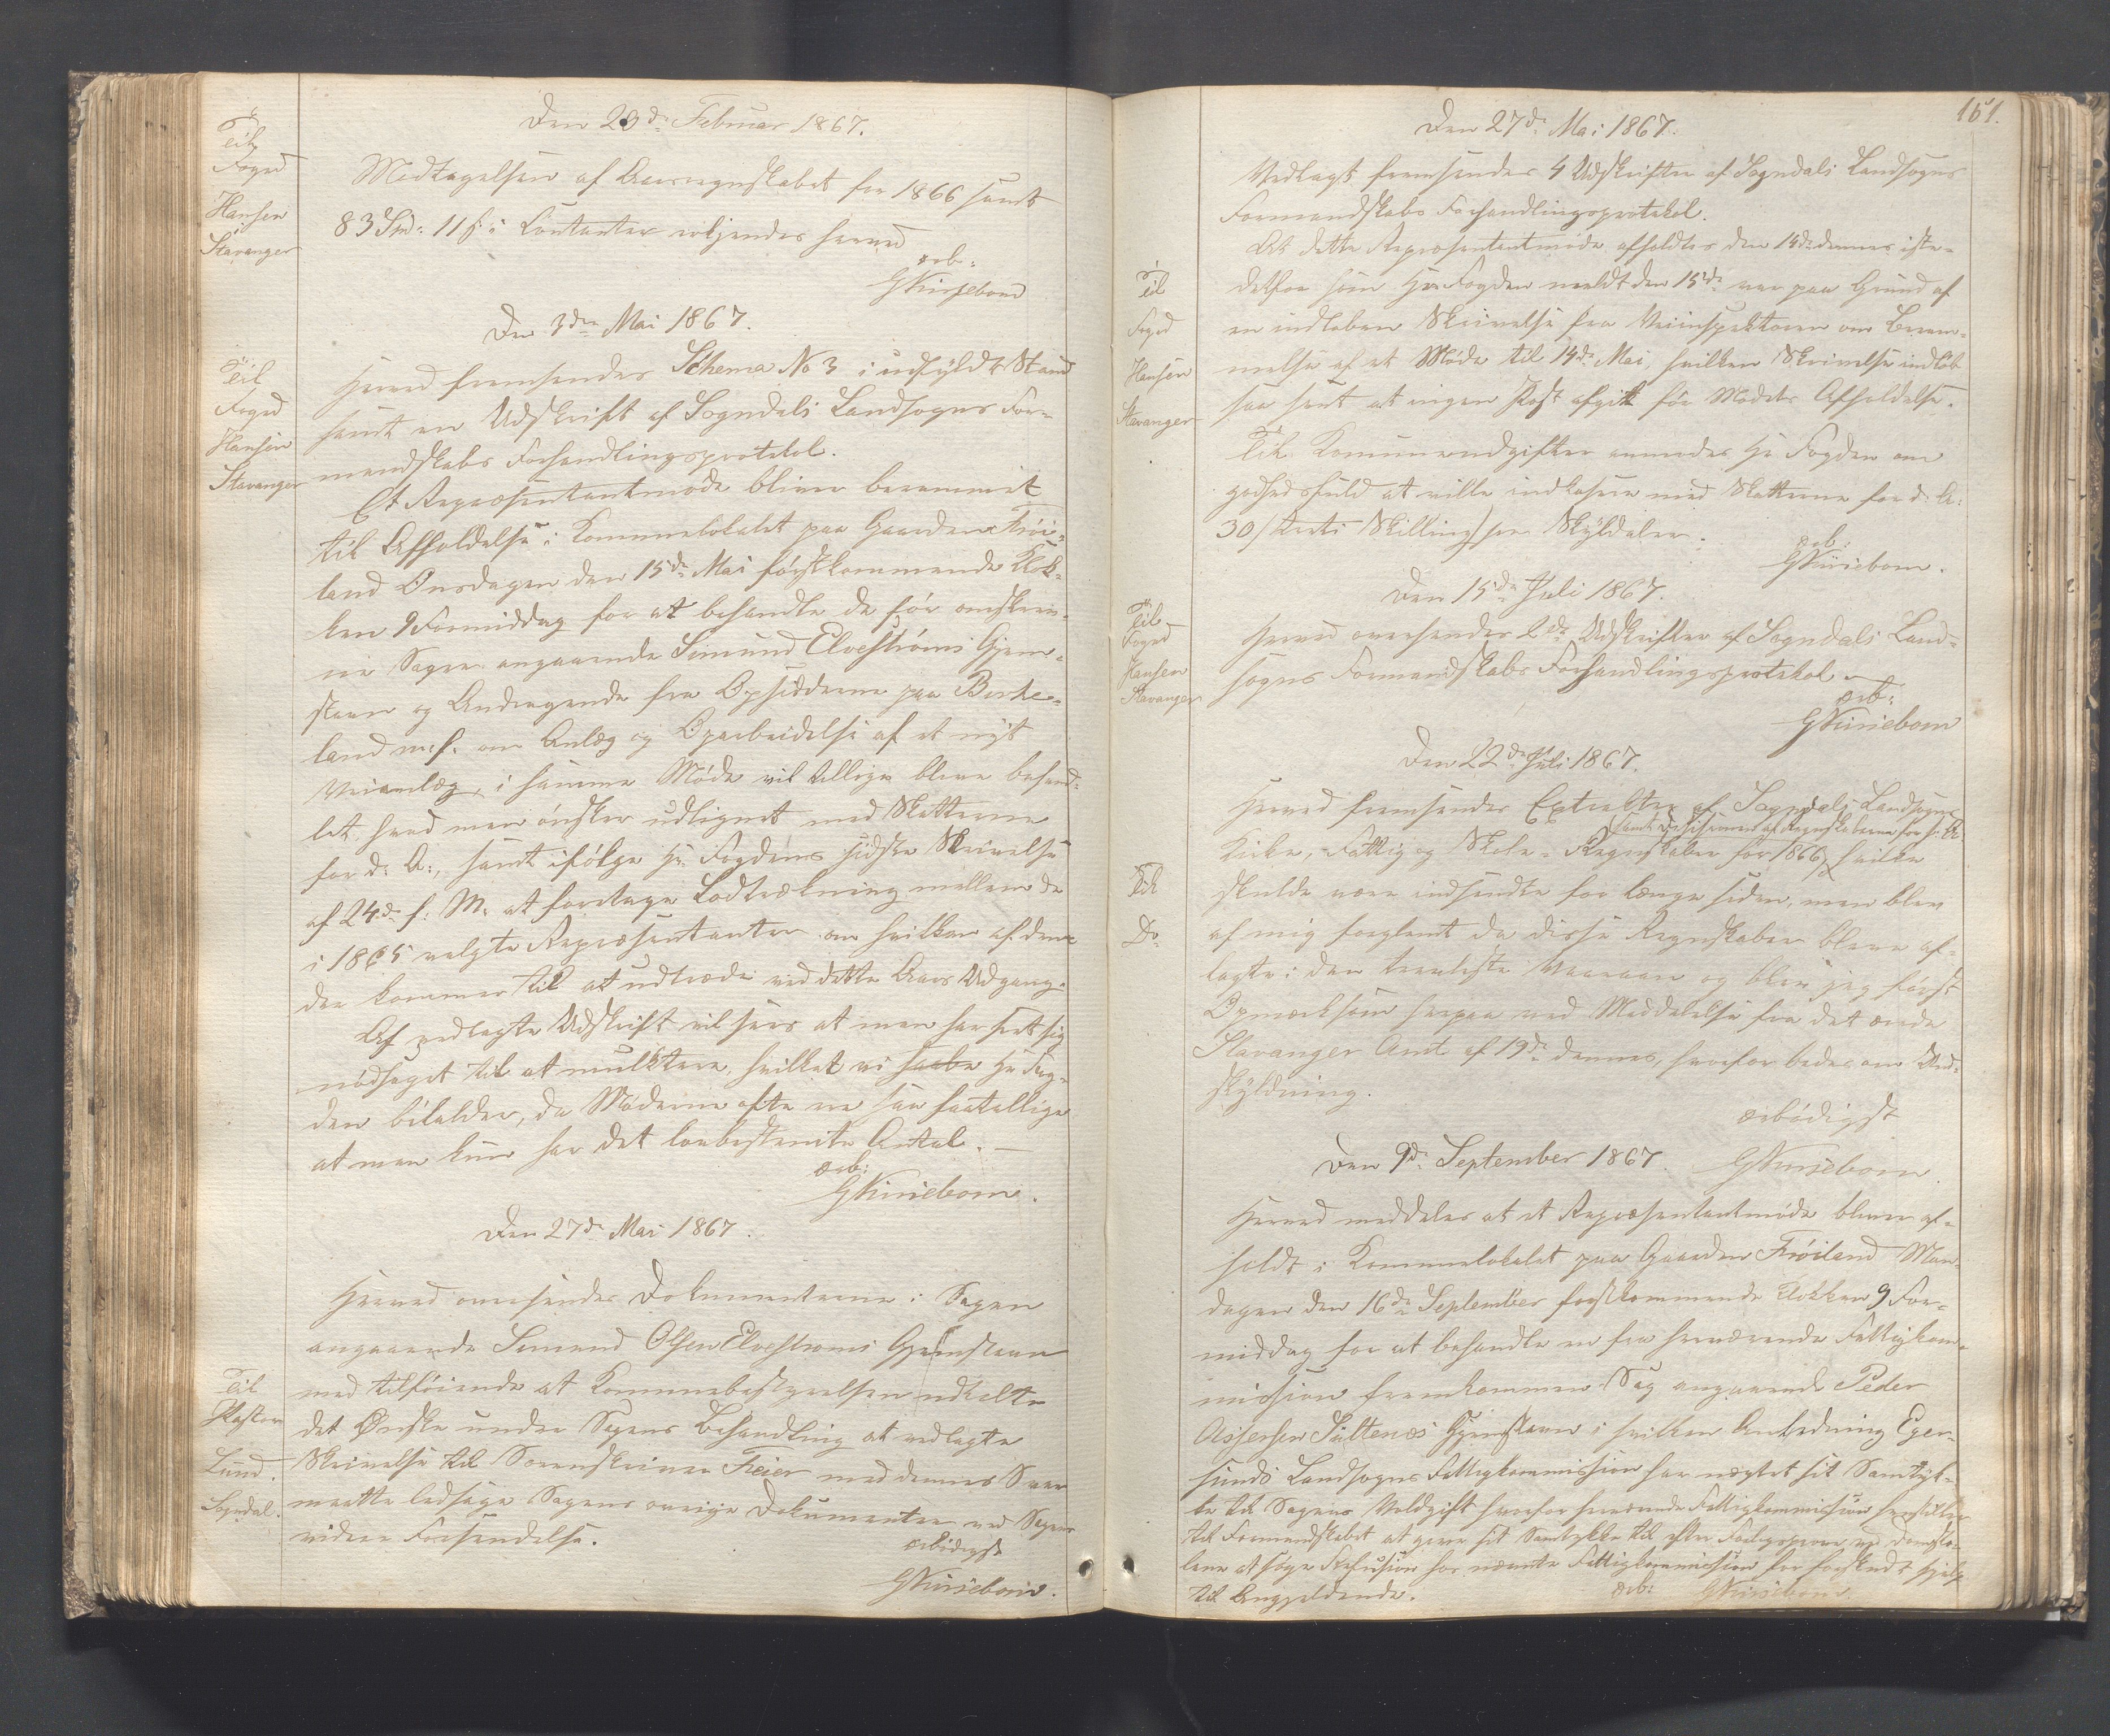 Til
Foged
Hansen
Stavanger
Den 20de Februar 1867.
Modtagelsen af Aarsregnskabet for 1866 samt
83 Spd: 11 s i Contanter erkjendes herved
ærb:
GKirsebom
Til
Foged
Hansen
Stavanger
Den 3die Mai 1867.
Herved fremsendes Schema No 3 i udfyldt Stand
samt en Udskrift af Sogndals Landsogns For-
mandskabs Forhandlingsprotokol.
Et Repræsentantmøde bliver berammet
til Afholdelse i Kommunelokalet paa Gaarden Frøi-
land Onsdagen den 15de Mai førstkommende Klok-
ken 9 Formiddag for at behandle de før omskrev-
ne Sager angaaende Simund Elvestrøms Gjen-
stavn og Andragende fra Opsidderne paa Birke-
land m: fl. om Anlæg og Oparbeidelse af et nyt
Veianlæg, i samme Møde vil tillige blive behand-
let hvad man ønsker udlignet med Skatterne
for d: A:, samt ifølge Hr Fogdens sidste Skrivelse
af 24de f: M: at foretage Lodtrækning mellem de
i 1865 valgte Repræsentanter om hvilken af dem
der kommer til at udtræde ved dette Aars Udgang.
Af vedlagte Udskrift vil sees at man har seet sig
nødsaget til at mulktere, hvilket vi haabe Hr Fog-
den bifalder, da Møderne ofte ere saa faatallige
at man kun har det lovbestemte Antal. –
ærb:
GKirsebom.
Den 27de Mai 1867.
Til
Pastor
Lund.
Sogndal.
Herved oversendes Dokumenterne i Sagen
angaaende Simund Olsen Elvestrøms Gjenstavn
med tilføiende at Kommunebestyrelsen udtalte
det Ønske under Sagens Behandling at vedlagte
Skrivelse til Sorenskriver Feier med dennes Svar
maatte ledsage Sagens øvrige Dokumenter ved Sagens
videre Forsendelse.
ærbødigst
GKirsebom.
151.
Den 27de Mai 1867.
Vedlagt fremsendes 4 Udskrifter af Sogndals Landsogns
Formandskabs Forhandlingsprotokol.
Til
Foged
Hansen
Stavanger
At dette Repræsentantmøde afholdtes den 14de dennes iste-
detfor som Hr Fogden meldt den 15de var paa Grund af
en indløben Skrivelse fra Veiinspektøren om Beram-
melse af et Møde til 14de Mai, hvilken Skrivelse indløb
saa sent at ingen Post afgik før Mødets Afholdelse.
Til Kommuneudgifter anmodes Hr Fogden om
godhedsfuld at ville indkassere med Skatterne for d: A:
30 /treti Skilling/ pr Skylddaler.
ærb:
GKirsebom.
Den 15de Juli 1867.
Til
Foged
Hansen
Stavanger
Herved oversendes 2de Udskrifter af Sogndals Land-
sogns Formandskabs Forhandlingsprotokol –
ærb:
GKirsebom
Den 22de Juli 1867.
Til
Do
Herved fremsendes Extrakter af Sogndals Landsogns
samt Decisionen af Regnskaberne for f: A:
Kirke, Fattig og Skole-Regnskaber for 1866, hvilke
skulde være indsendte for længe siden, men blev
af mig forglemt da disse Regnskaber bleve af-
lagte i den travleste Vaaraan og blev jeg først
Opmærksom herpaa ved Meddelelse fra det ærede
Stavanger Amt af 19de dennes, hvorfor bedes om Und-
skyldning.
ærbødigst
GKirsebom.
Den 9de September 1867.
Herved meddeles at et Repræsentantmøde bliver af-
holdt i Kommunelokalet paa Gaarden Frøiland Man-
dagen den 16de September førstkommende Klokken 9 For-
middag for at behandle en fra herværende Fattigkom-
mission fremkommen Sag angaaende Peder
Assersen Sultenæs Gjenstavn i hvilken Anledning Eger-
sunds Landsogns Fattigkommission har nægtet sit Samtyk-
ke til Sagens Voldgift hvorfor herværende Fattigkommission henstiller
til Formandskabet at give sit Samtykke til efter Forligsprøve ved Domsto-
lene at søge Refusion hos nævnte Fattigkommission for forskudt Hjælp
til Angjeldende.
ærb: GKirsebom.